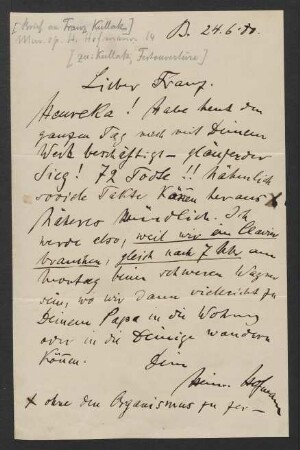 [Brief an Franz Kullak]
B. 24.6.80.
[zu: Kullak, Festouvertüre]
Lieber Franz.
Heureka! Habe heut den
ganzen Tag noch mit Deinem
Werk beschäftigt – glänzender
Sieg! 72 Todte!! Nähmlich
soviele Takte können heraus x
Näheres Mündlich. Ich
werde also, weil wir ein Clavier
brauchen, gleich nach 7 Uhr am
Montag beim schweren Wagner
sein, wo wir dann vielleicht zu
Deinem Papa in die Wohnung
oder in die Deinige wandern
können.
Dein
Heinr. Hofmann
x ohne den Organismus zu zer–